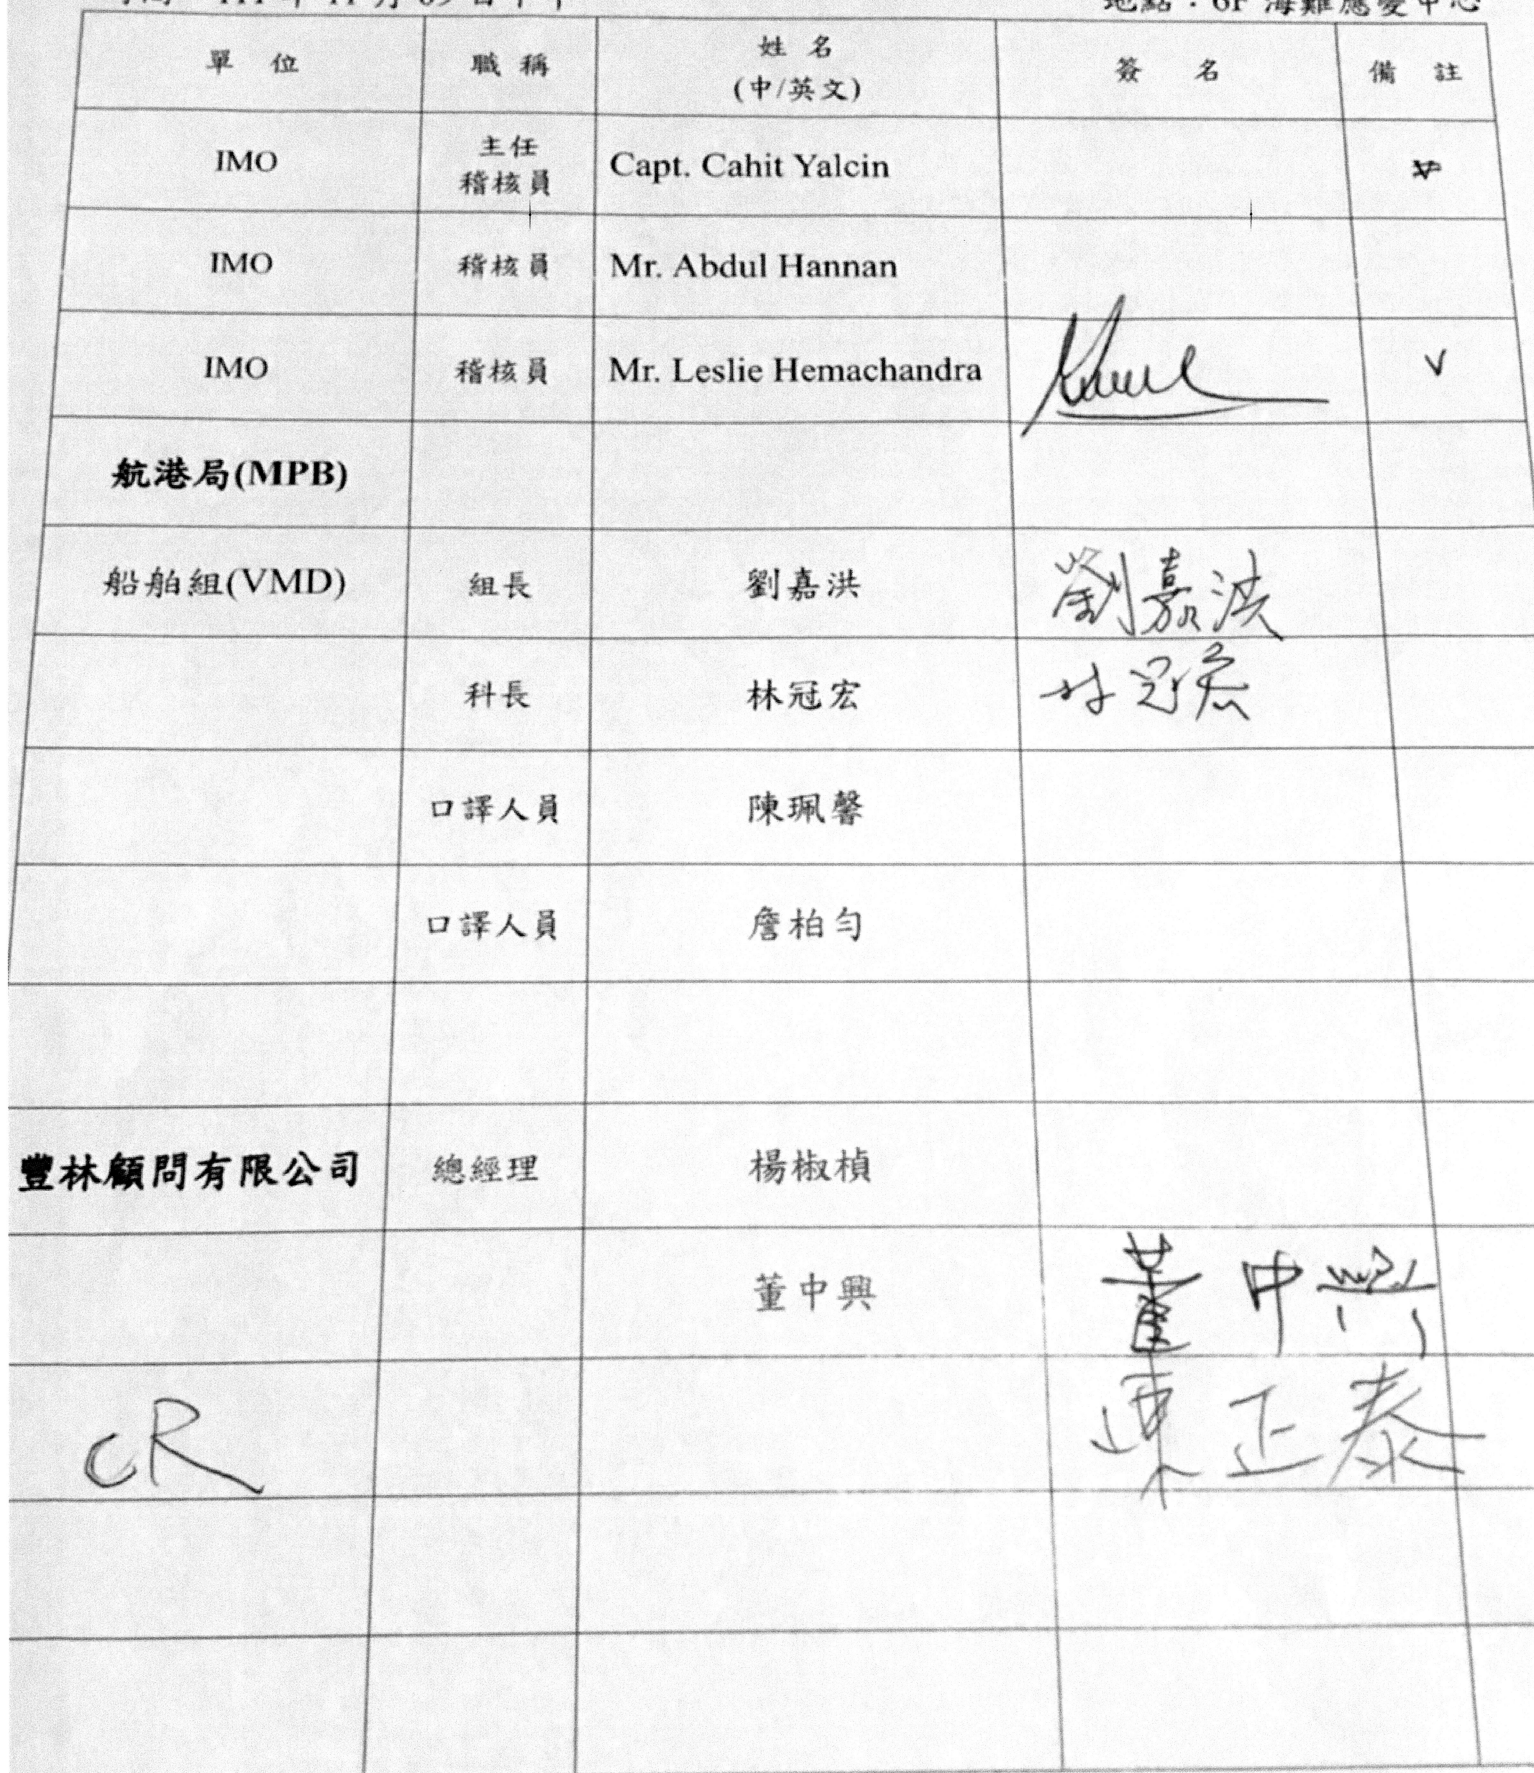 地點：6F 海難應變中心
單 位 職 稱 姓 名 簽 名 備 註
(中/英文)
IMO 主任 Capt. Cahit Yalcin
稽核員
IMO 稽核員 Mr. Abdul Hannan
IMO 稽核員 Mr. Leslie Hemachandra V
航港局(MPB)
船舶組(VMD) 組長 劉嘉洪 劉嘉洪
科長 林冠宏 林冠宏
口譯人員 陳珮馨
口譯人員 詹柏勻
豐林顧問有限公司 總經理 楊椒楨
董中興 董中興
CR 陳正泰